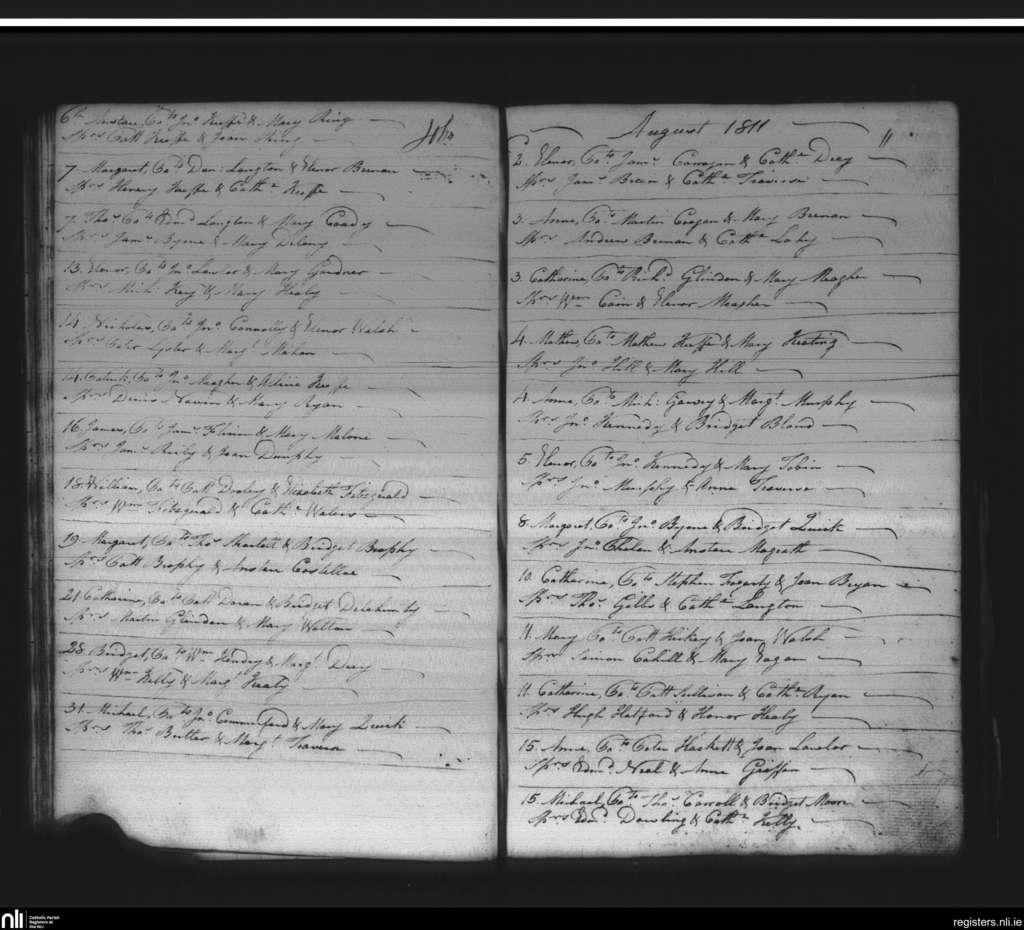 6th Anstan, Bo to Jno Keeffe & Mary Ring
Sprs Patt Keeffe & Joan Ring
7. Margaret, Bo to Dan: Langton & Elenor Brenan
Sprs Henery Keeffe & Cathn Keeffe
7. Thos Bo to Edmd Langton & Mary Coady
Sprs Jams Byrne & Mary Delany
13. Elenor, Bo to Jno Lawler & Mary Gardner
Sprs Mich: & Mary Healy
14. Nicholas, Bo to Jno Connolly & Elenor Walsh
Sprs Peter Lyster & Margt Mahon
14. Patrick, Bo to Jno Meagher & Keeffe
Sprs Denis Navin & Mary Ryan
16. James, Bo to Jams & Mary Malone
Sprs Jams Reily & Joan Dunphy
18. William, Bo to Patt & Elizabeth Fitzgerald
Sprs Wm Fitzgerald & Cathn Waters
19. Margaret, Bo to Thos & Bridget Brophy
Sprs Patt Brophy & Anstan Costelloe
21. Catharine, Bo to Patt Doran & Bridget Delahunty
Sprs Martin Glindon & Mary Walton
28. Bridget, Bo to Wm Hendy & Margt Deey
Sprs Wm Kelly & Margt Healy
31. Michael, Bo to Jno Commerford & Mary Quirk
Sprs Thos Butler & Margt Traverse
August 1811
11
2. Elenor, Bo to Jams Corragan & Cathn Deey
Sprs Jams Breen & Cathn Traverse
3. Anne, Bo to Martin Cregan & Mary Brenan
Sprs Andrew Brenan & Cathn Lahy
3. Catharine, Bo to Richd Glindon & Mary Meagher
Sprs Wm Cain & Elenor Meagher
4. Mathew, Bo to Mathew Keeffe & Mary Keating
Sprs Jno Hill & Mary Hill
4. Anne, Bo to Mich: & Margt Murphy
Sprs Jno Kennedy & Bridget Bland
5. Elenor, Bo to Jno Kennedy & Mary Tobin
Sprs Jno Murphy & Anne Traverse
8. Margaret, Bo to Jno Byrne & Bridget Quirk
Sprs Jno Phelan & Anstan Magrath
10. Catharine, Bo to Stephen Fogarty & Joan Bryan
Sprs Thos Gills & Cathn Langton
11. Mary Bo to Patt Hickey & Joan Walsh
Sprs Simon Cahill & Mary Eagan
11. Catharine, Bo to Patt Sullivan & Cathn Ryan
Sprs Hugh Hatford & Honor Healy
15. Anne, Bo to Peter Haskett & Joan Lawlor
Sprs Edmd Neal & Anne Griffen
15. Michael, Bo to Thos Carroll & Bridget Moore
Sprs Edmd Dowling & Cathn Kelly
nli
Catholic Parish
Registers at
the NLI
registers.nli.ie